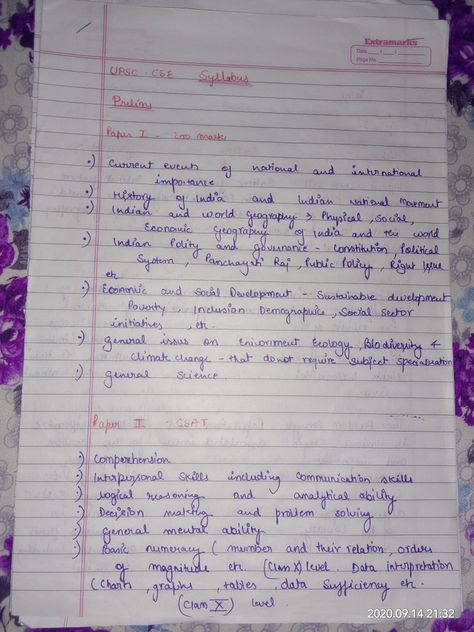 Extramarks
Date
Page No.
UPSC - CSE Syllabus
Prelims
Paper I - 200 marks
•) Current events of national and international
importance
•) History of India and Indian National Movement
•) Indian and world geography → Physical, Social,
Economic Geography of India and the world
•) Indian Polity and governance - Constitution, Political
System, Panchayati Raj, Public Policy, Right Issue
etc
•) Economic and Social Development - Sustainable development
Poverty, Inclusion Demographics, Social Sector
initiatives, etc.
•) general issues on Enivorment Ecology, Bio diversity &
Climate change - that do not require subject specialisation
•) general Science
Paper II - CSAT
•) Comprehension
•) Interpersonal skills including communication skills
•) Logical reasoning and analytical ability
•) Decision making and problem solving
•) general mental ability
•) Basic numeracy ( number and their relation, orders
of magnitude etc. (Class X) level. Data interpretation
(Charts, graphs, tables, data sufficiency etc.
(Class X) level.
2020.09.14 21:32